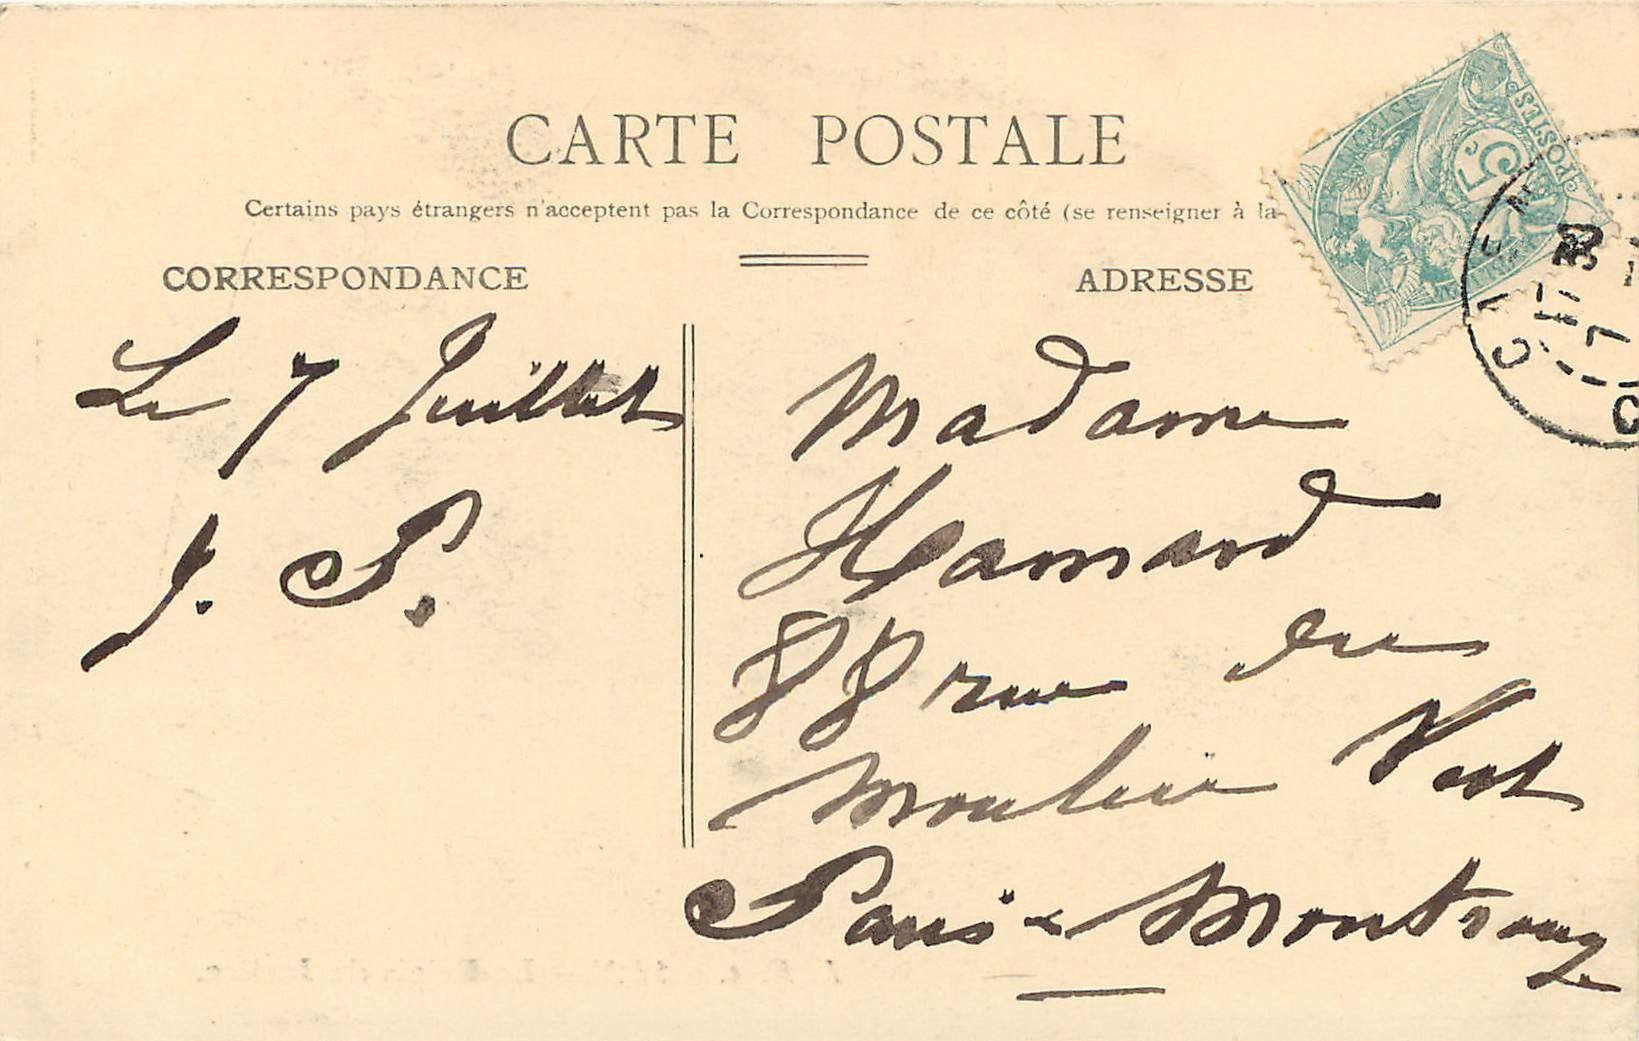 CARTE POSTALE
Certains pays étrangers n'acceptent pas la Correspondance de ce côté (se renseigner à la
CORRESPONDANCE
ADRESSE
Le 7 Juillet
J. P.
Madame
Hamard
88 rue du
Moulin Vert
Paris-Montrouge
POSTES
5c
CAEN